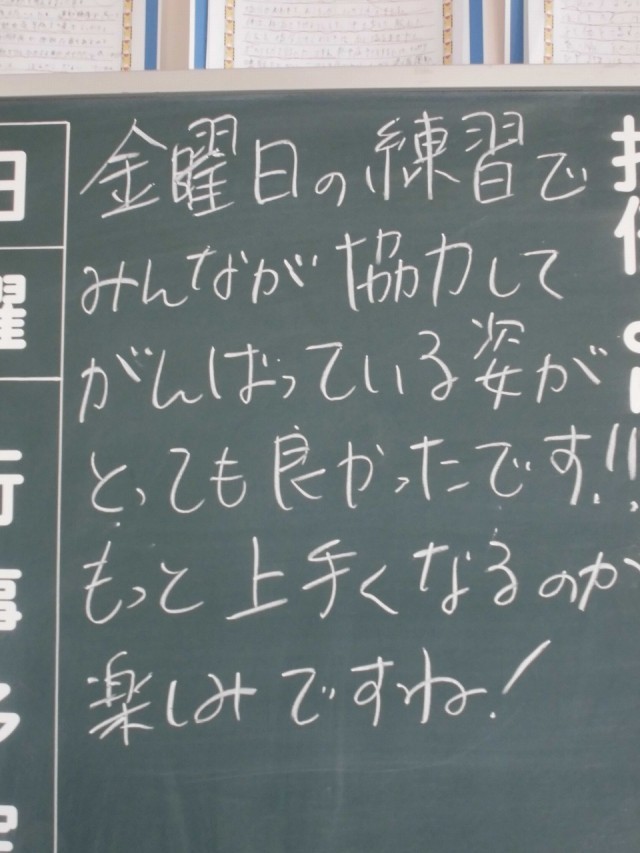 金曜日の練習で
みんなが協力して
がんばっている姿が
とっても良かったです!!
もっと上手くなるのが
楽しみですね!
日
曜
行
事
予